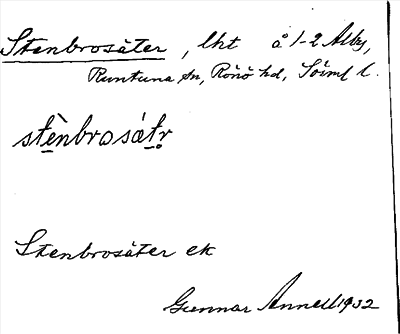 Stenbrosäter, lht å 1-2 Alby,
Runtuna sn, Rönö hd, Söiml l.
stènbrosátr
Stenbrosäter ek
Gunnar Annell 1932